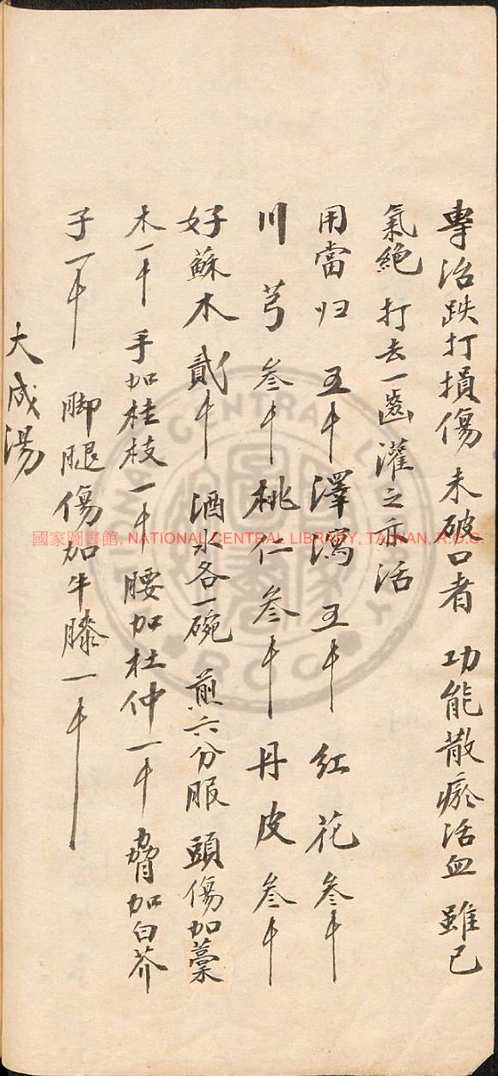 專治跌打損傷未破口者 功能散瘀活血 雖已
氣絶 打去一齒灌之亦活
用當归 五千 澤瀉 五千 紅花 叁千
川芎 叁千 桃仁 叁千 丹皮 叁千
好蘇木 貳千 酒水各一碗 煎六分服 頭傷加藁
木一千 手加桂枝一千 腰加杜仲一千 脅加白芥
子一千 脚腿傷加牛膝一千
大成湯
國家圖書館, NATIONAL CENTRAL LIBRARY, TAIWAN, R.O.C